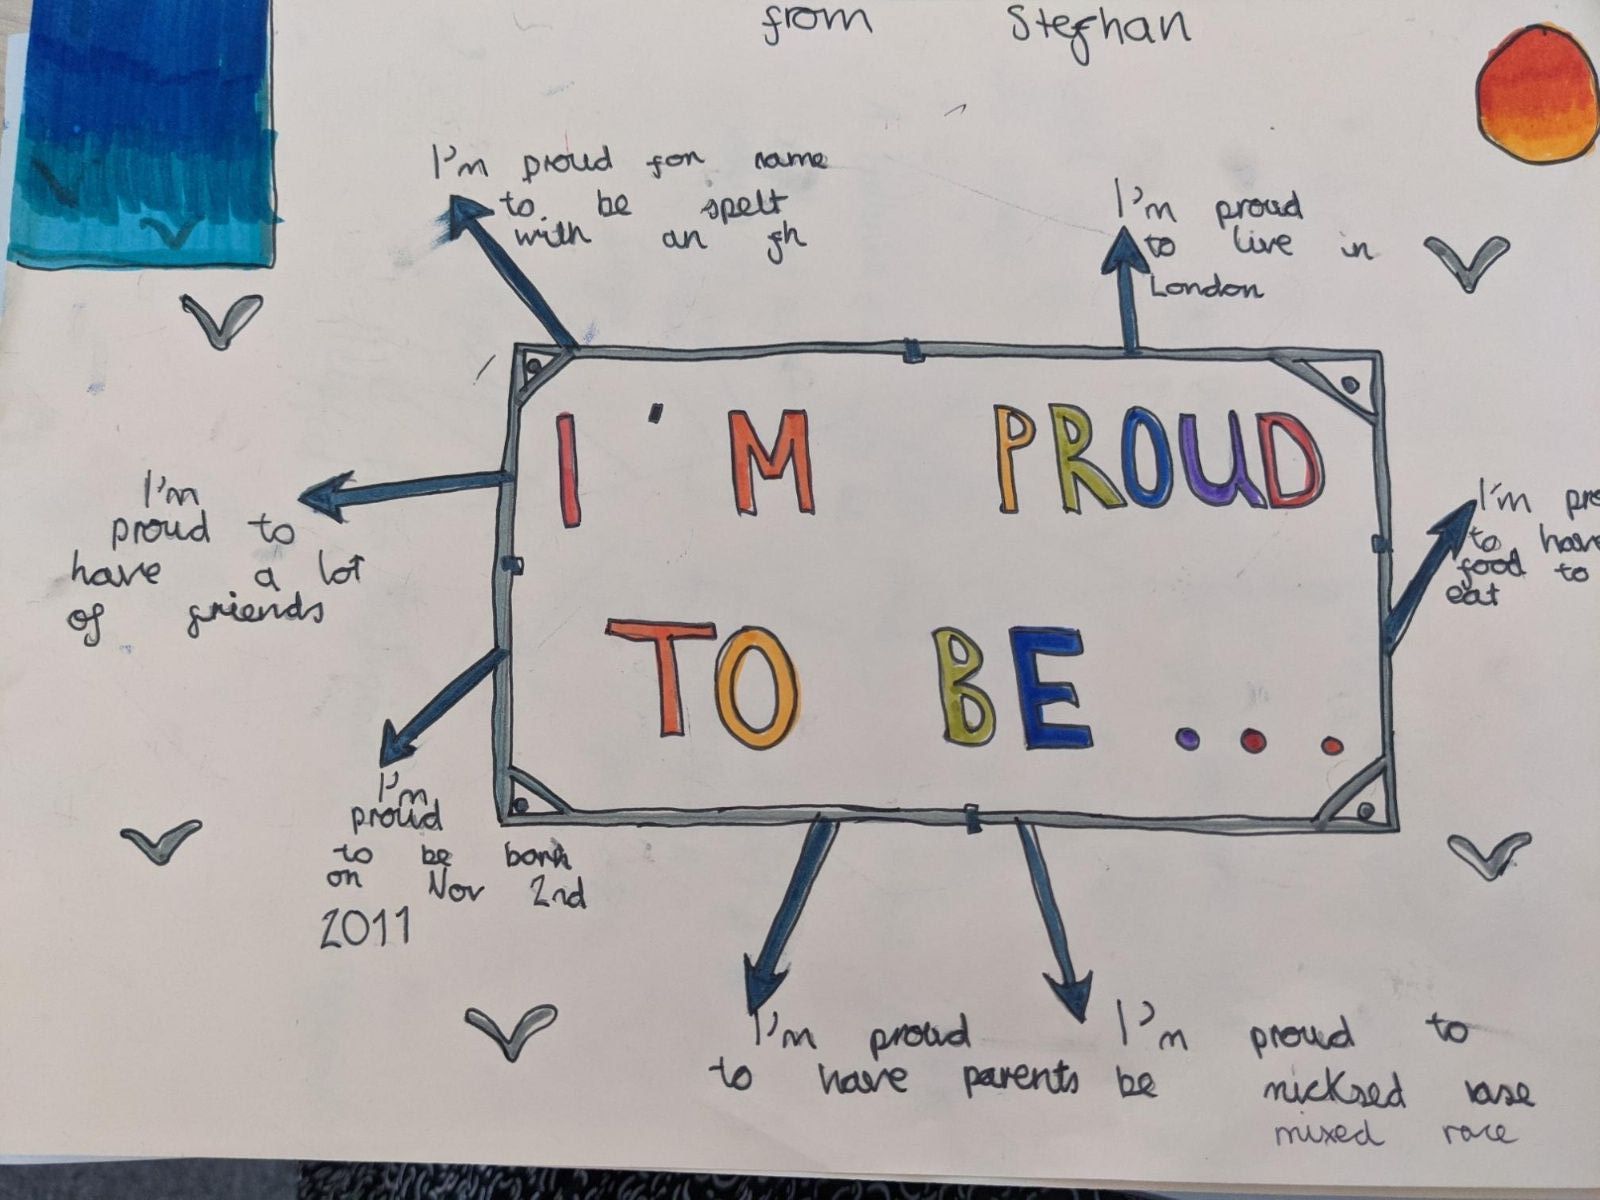 from Stefhan
I'm proud for name
to be spelt
with an fh
I'm proud
to live in
London
I'M PROUD
TO BE...
I'm
proud to
have a lot
of friends
I'm
to have
food to
eat
I'm
proud
to be born
on Nov 2nd
2011
I'm proud
to have parents
I'm proud to
be micksed rase
mixed race